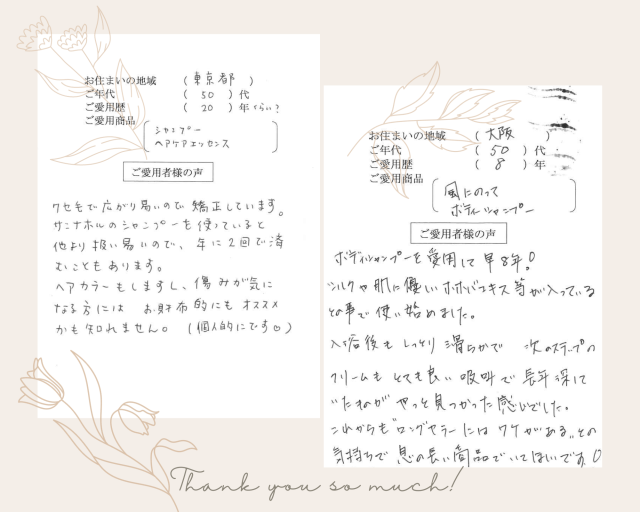 お住まいの地域 ( 東京都 )
ご年代 ( 50 ) 代
ご愛用歴 ( 20 ) 年 くらい?
ご愛用商品
シャンプー
ヘアケアエッセンス
ご愛用者様の声
クセ毛で広がり易いので矯正しています。
サニナホルのシャンプーを使っていると
他より扱い易いので、年に2回で済
むこともあります。
ヘアカラーもしますし、傷みが気に
なる方には お財布的にもオススメ
かも知れません。(個人的にです♡)
お住まいの地域 ( 大阪 )
ご年代 ( 50 ) 代
ご愛用歴 ( 8 ) 年
ご愛用商品
風にのって
ボディシャンプー
ご愛用者様の声
ボディシャンプーを愛用して早8年!
シルクや肌に優しいホホバエキス等が入っている
との事で使い始めました。
入浴後もしっとり滑らかで 次のステップの
クリームもとても良い吸収で長年探して
いたものがやっと見つかった感じでした。
これからも"ロングセラーにはワケがある"との
気持ちで息の長い商品でいてほしいです!
Thank you so much!